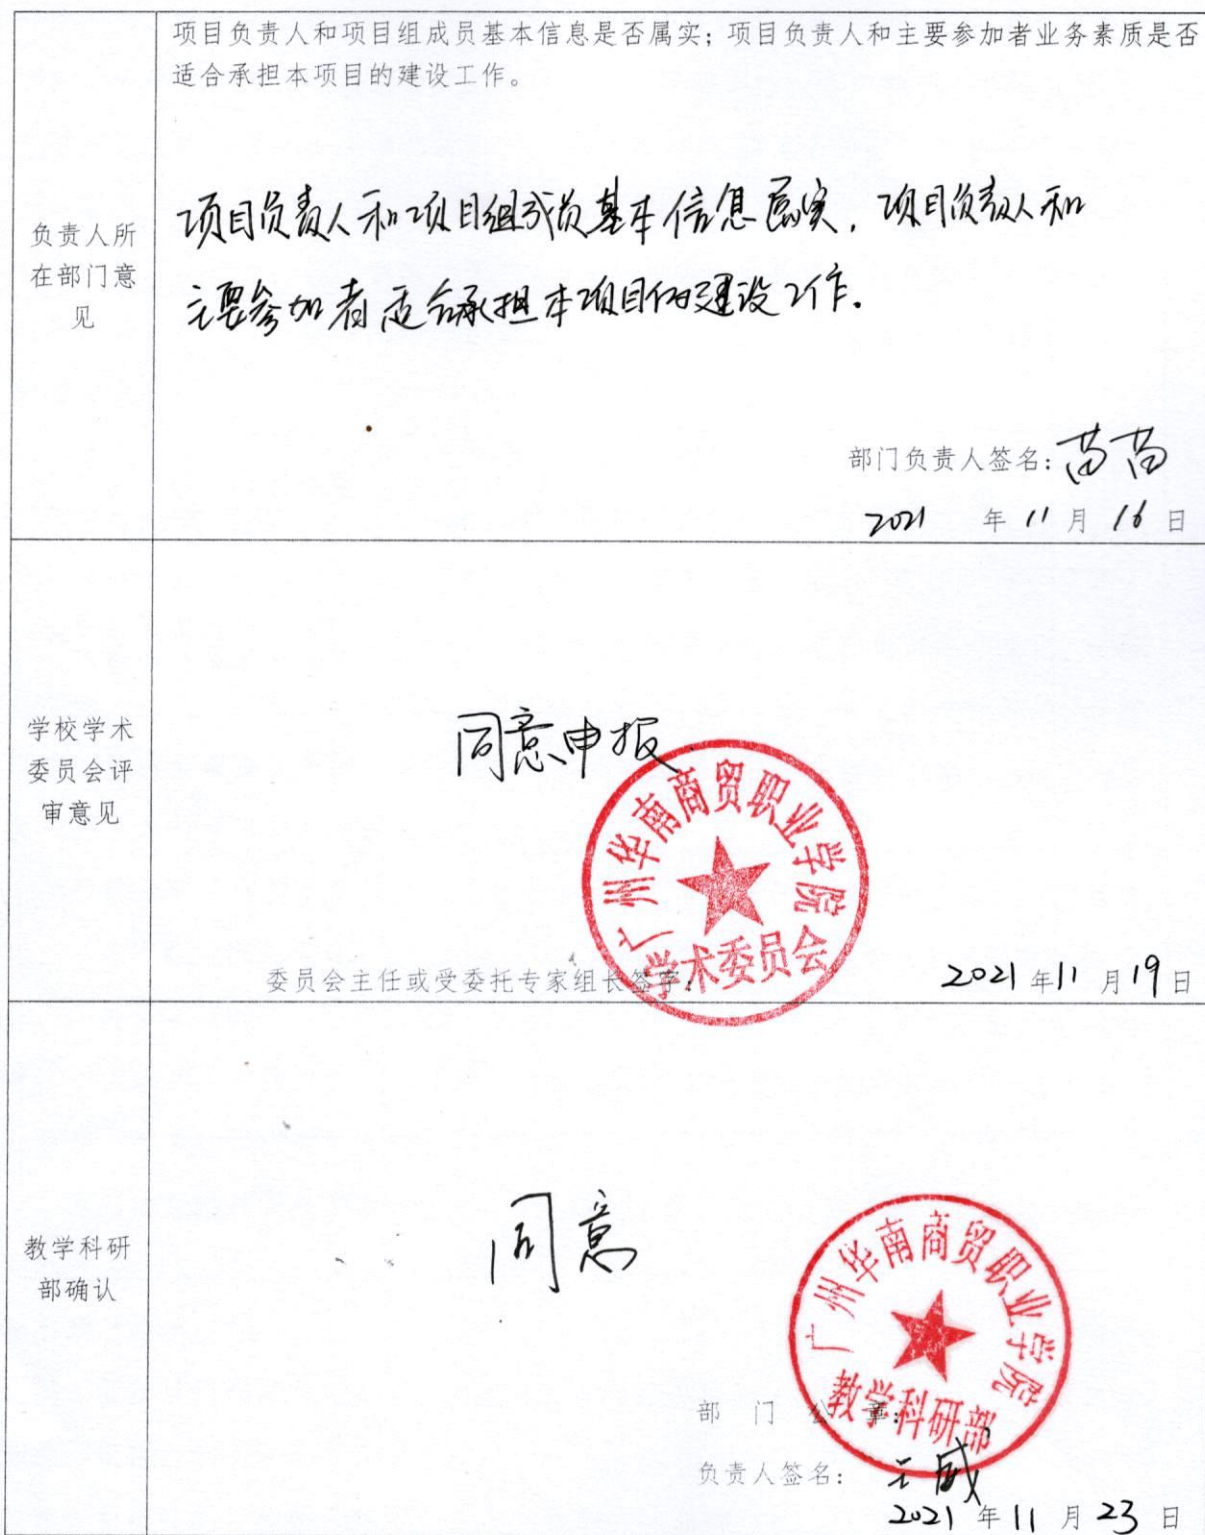 项目负责人和项目组成员基本信息是否属实；项目负责人和主要参加者业务素质是否
适合承担本项目的建设工作。
负责人所
在部门意
见
项目负责人和项目组成员基本信息属实，项目负责人和
主要参加者适合承担本项目的建设工作.
部门负责人签名：苗苗
2021 年 11 月 16 日
学校学术
委员会评
审意见
同意申报
广州华南商贸职业学院
学术委员会
委员会主任或受委托专家组长签字：
2021 年 11 月 19 日
教学科研
部确认
同意
广州华南商贸职业学院
教学科研部
部 门 公 章：
负责人签名：王威
2021 年 11 月 23 日